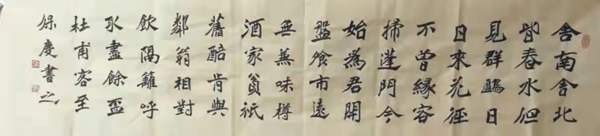 舍南舍北
皆春水但
見群鷗日
日來花徑
不曾緣客
掃蓬門今
始為君開
盤飧市遠
無兼味樽
酒家貧祇
舊醅肯與
鄰翁相對
飲隔籬呼
取盡餘盃
杜甫客至
保慶書之